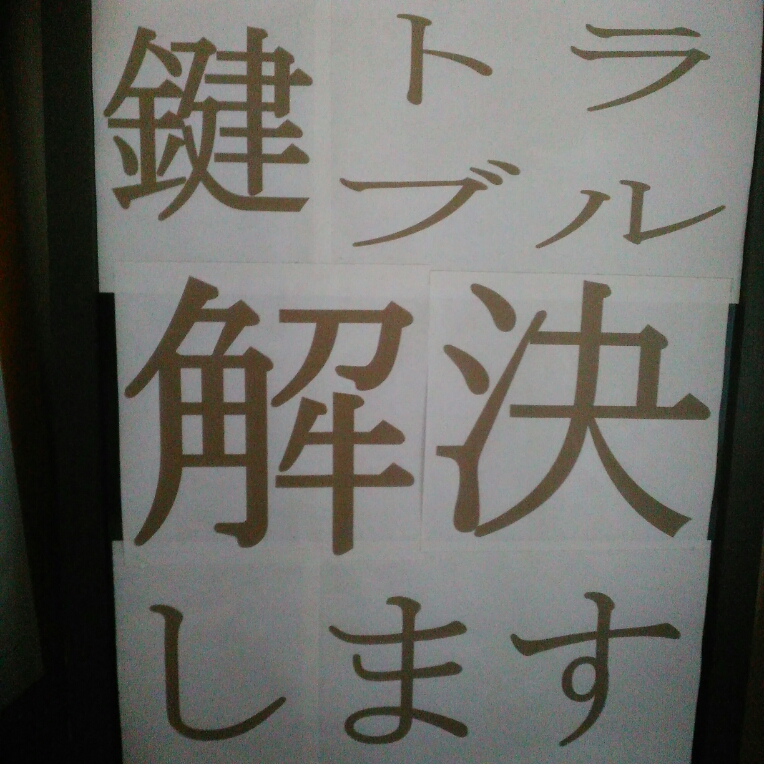 鍵トラブル
解決
します